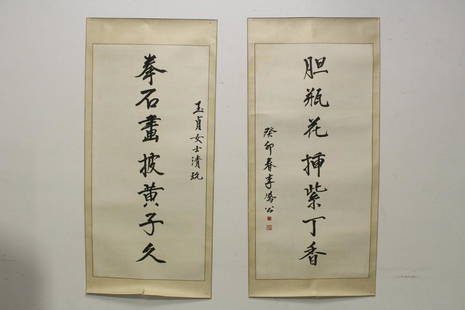 拳石畫披黃子久
玉貞女士清玩
胆瓶花挿紫丁香
癸卯春李